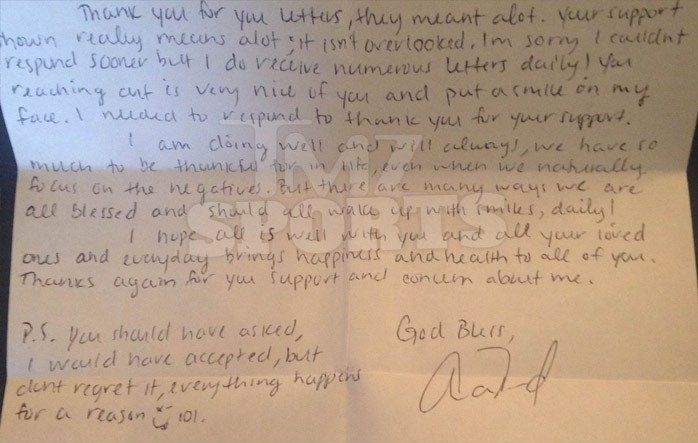 Thank you for you letters, they meant alot. Your support
shown really means alot & it isn't overlooked. I'm sorry I couldnt
respond sooner but I do receive numerous letters daily! You
reaching out is very nice of you and put a smile on my
face. I needed to respond to thank you for your support.
I am doing well and will always, we have so
much to be thankful for in life, even when we naturally
focus on the negatives. But there are many ways we are
all blessed and should all wake up with smiles, daily!
I hope all is well with you and all your loved
ones and everyday brings happiness and health to all of you.
Thanks again for you support and concern about me.
P.S. You should have asked,
I would have accepted, but
dont regret it, everything happens
for a reason 101.
God Bless,
TMZ
SPORTS